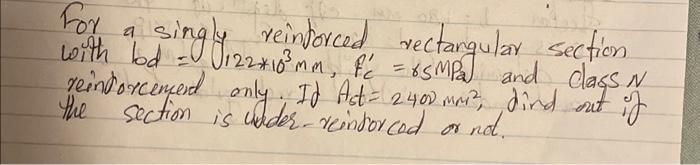 For a singly reinforced rectangular section
with bd = 122*10³ mm, f'c = 65MPa and class N
reinforcement only. If Ast = 2400 mm², find out if
the section is under-reinforced or not.